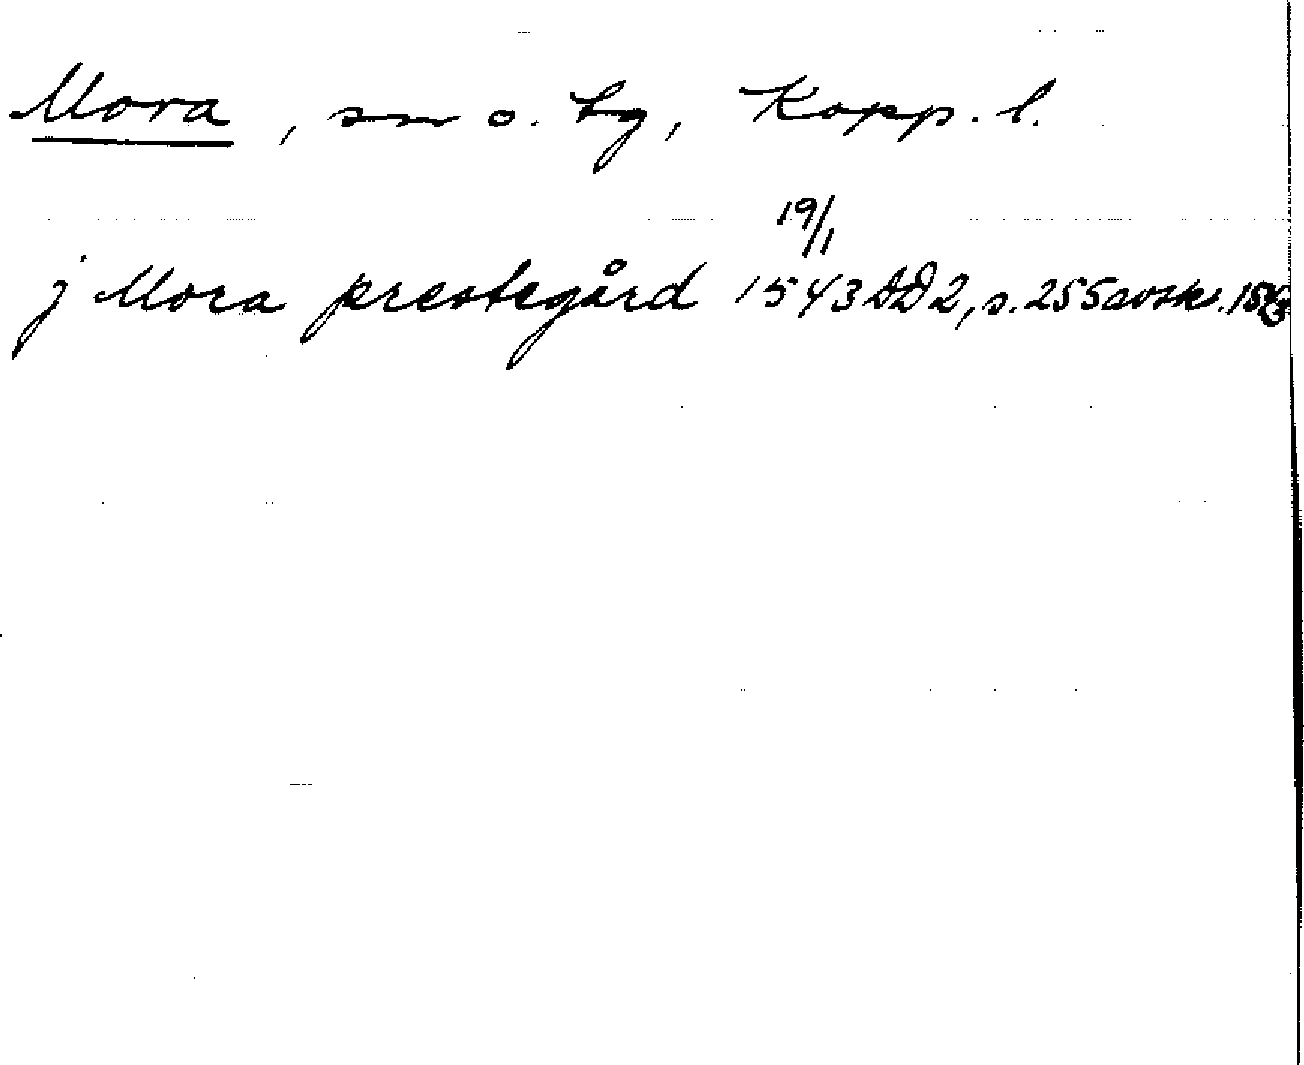 Mora, sn o. tg, Kopp. l.
j Mora prestegård 19/1 1543 DD 2, s. 255 avskr.